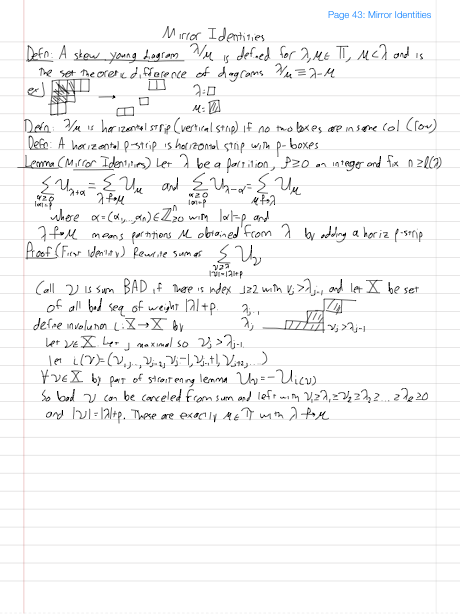 Page 43: Mirror Identities
Mirror Identities
Defn: A skew young diagram λ/μ is defined for λ,μ ∈ Π, μ<λ and is
the set theoretic difference of diagrams λ/μ ≡ λ-μ
ex)
λ=□
μ=
Defn: λ/μ is horizontal strip (vertical strip) if no two boxes are in same col (row)
Defn: A horizontal p-strip is horizontal strip with p-boxes
Lemma (Mirror Identities) Let λ be a partition, p≥0 an integer and fix n≥l(λ)
∑_{α≥0, |α|=p} U_{λ+α} = ∑_{λ →p μ} U_μ and ∑_{α≥0, |α|=p} U_{λ-α} = ∑_{μ →p λ} U_μ
where α=(α₁,...,αₙ)∈ℤⁿ≥0 with |α|=p and
λ →p μ means partitions μ obtained from λ by adding a horiz p-strip
Proof (First Identity) Rewrite sum as ∑_{ν≥λ, |ν|=|λ|+p} U_ν
Call ν is sum BAD if there is index j≥2 with νⱼ>λⱼ₋₁ and let X be set
of all bad seq of weight |λ|+p. λⱼ₋₁
define involution i:X→X by λⱼ νⱼ>λⱼ₋₁
Let ν∈X. Let j maximal so νⱼ>λⱼ₋₁
let i(ν)=(ν₁,...,νⱼ₋₂,νⱼ-1,νⱼ₋₁+1,νⱼ₊₁,...)
∀ν∈X by part of straitening lemma U_ν=-U_{i(ν)}
So bad ν can be canceled from sum and left with ν₁≥λ₁≥ν₂≥λ₂≥...≥λₗ≥0
and |ν|=|λ|+p. These are exactly μ∈Π with λ →p μ